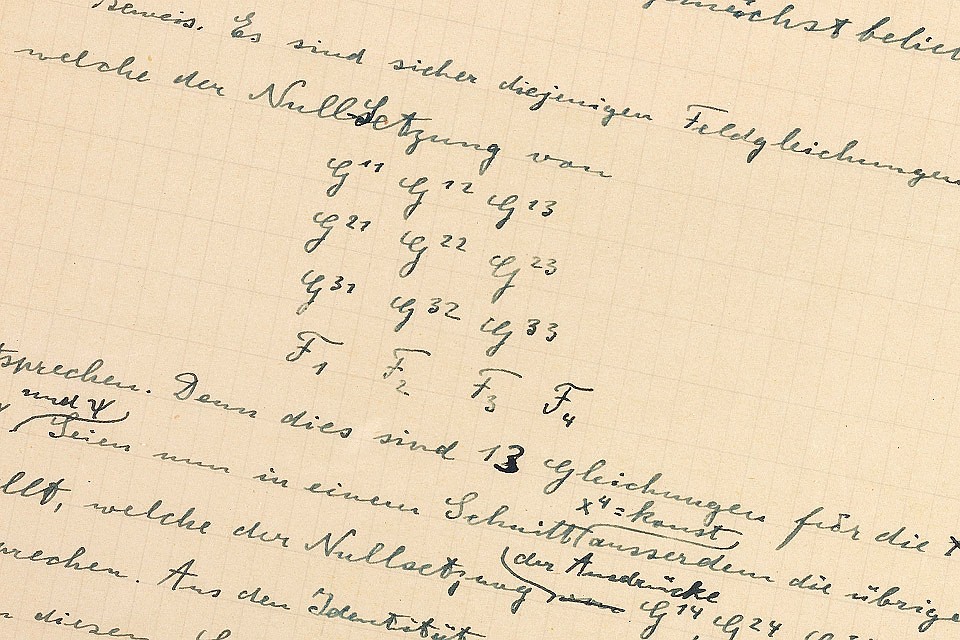 Beweis. Es sind sicher diejenigen Feldgleichungen
welche der Nullsetzung von
G¹¹ G¹² G¹³
G²¹ G²² G²³
G³¹ G³² G³³
F₁ F₂ F₃ F₄
sprechen. Denn dies sind 13 Gleichungen für die
und ψ
Seien nun in einem Schnitt x⁴ = konst ausserdem die übrige
llt, welche der Nullsetzung der Ausdrücke G¹⁴ G²⁴
prechen. Aus den Identität
diesen